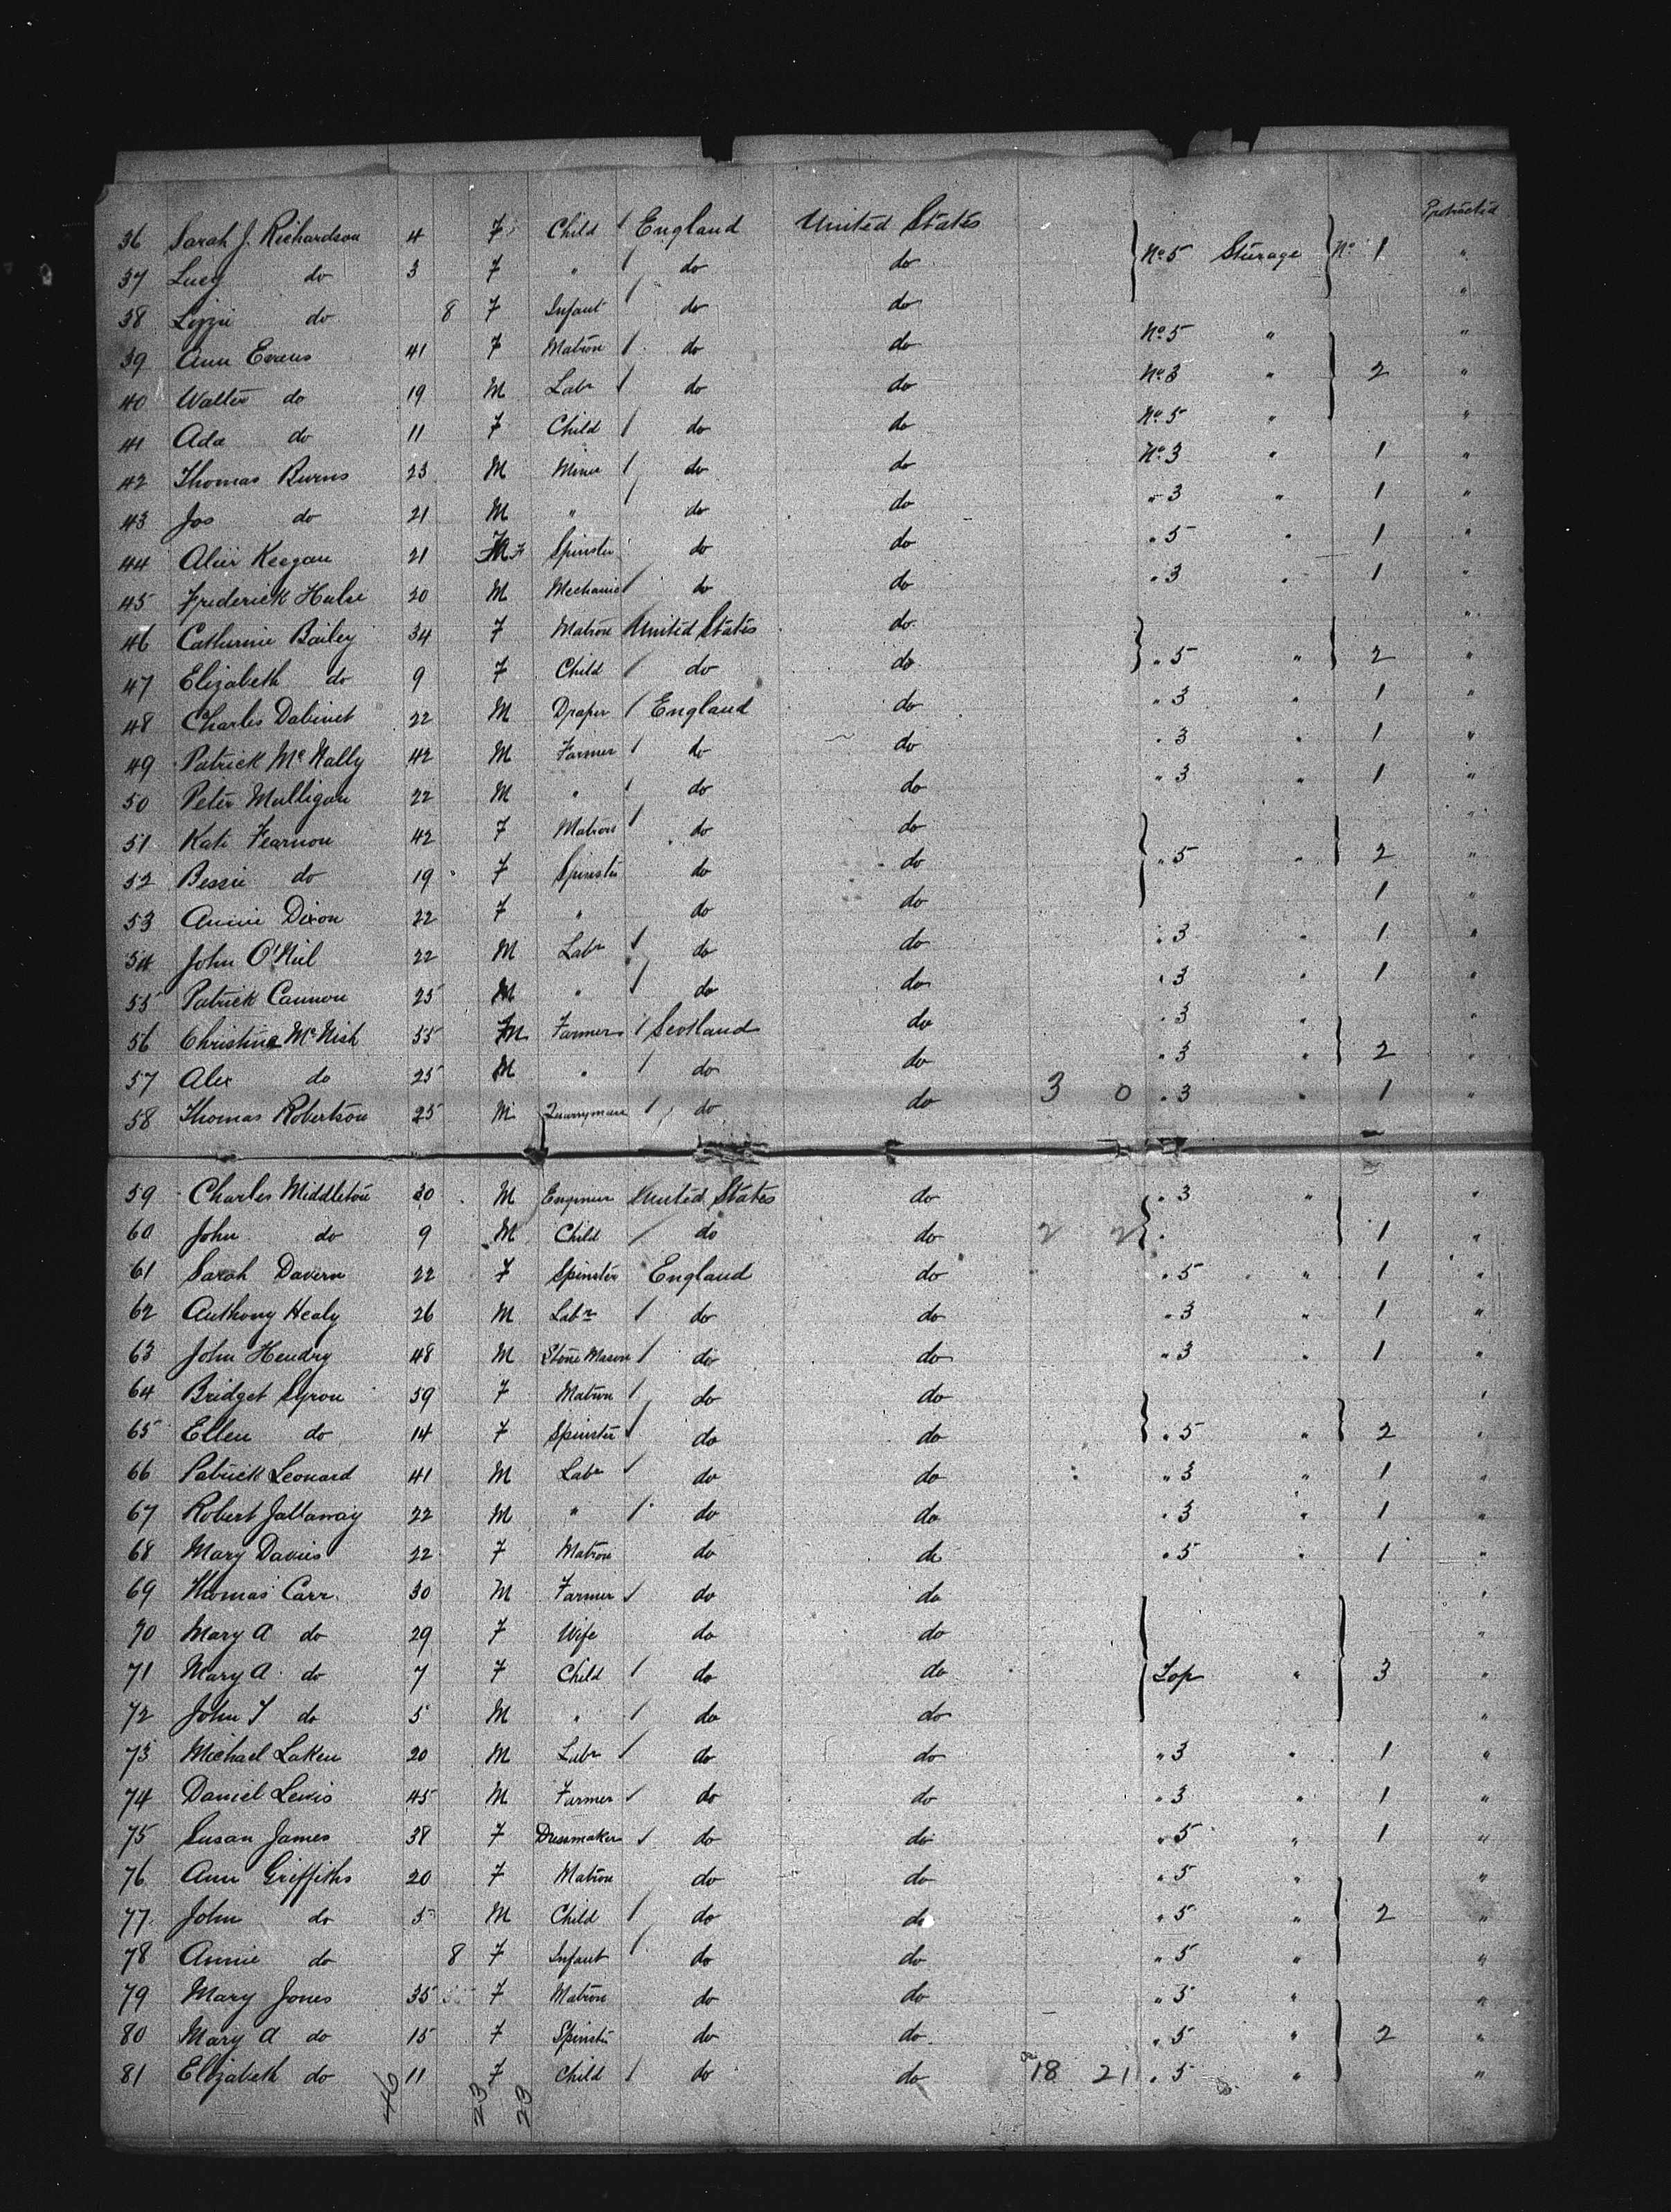 Protracted
36 Sarah J. Richardson 4 F Child England United States No 5 Steerage No 1 "
37 Lucy do 3 F " do do "
38 Lizzie do 8 F Infant do do "
39 Ann Evans 41 F Matron do do No 5 " "
40 Walter do 19 M Labr do do No 3 " 2 "
41 Ada do 11 F Child do do No 5 " "
42 Thomas Burns 23 M Miner do do No 3 " 1 "
43 Jas do 21 M " do do " 3 " 1 "
44 Alice Keegan 21 F Spinster do do " 5 " 1 "
45 Frederick Hulse 20 M Mechanic do do " 3 " 1 "
46 Catherine Bailey 34 F Matron United States do "
47 Elizabeth do 9 F Child do do " 5 " 2 "
48 Charles Dabinet 22 M Draper England do " 3 " 1 "
49 Patrick McNally 42 M Farmer do do " 3 " 1 "
50 Peter Mulligan 22 M " do do " 3 " 1 "
51 Kate Fearnon 42 F Matron do do "
52 Bessie do 19 F Spinster do do " 5 " 2 "
53 Annie Dixon 22 F " do do 1 "
54 John O'Neil 22 M Labr do do " 3 " 1 "
55 Patrick Cannon 25 M " do do " 3 " 1 "
56 Christina McNish 55 Farmer Scotland do " 3 " "
57 Alex do 25 M " do do " 3 " 2 "
58 Thomas Robertson 25 M Quarryman do do 3 0 " 3 " 1 "
59 Charles Middleton 30 M Engineer United States do " 3 " "
60 John do 9 M Child do do 2 2 " " 1 "
61 Sarah Davern 22 F Spinster England do " 5 " 1 "
62 Anthony Healy 26 M Labr do do " 3 " 1 "
63 John Hendry 48 M Stone Mason do do " 3 " 1 "
64 Bridget Syron 59 F Matron do do "
65 Ellen do 14 F Spinster do do " 5 " 2 "
66 Patrick Leonard 41 M Labr do do " 3 " 1 "
67 Robert 22 M " do do " 3 " 1 "
68 Mary Davies 22 F Matron do do " 5 " 1 "
69 Thomas Carr 30 M Farmer do do "
70 Mary A do 29 F Wife do do "
71 Mary A do 7 F Child do do Top " 3 "
72 John T do 5 M " do do "
73 Michael Laken 20 M Labr do do " 3 " 1 "
74 Daniel Lewis 45 M Farmer do do " 3 " 1 "
75 Susan James 38 F Dressmaker do do " 5 " 1 "
76 Ann Griffiths 20 F Matron do do " 5 " "
77 John do 5 M Child do do " 5 " 2 "
78 Annie do 8 F Infant do do " 5 " "
79 Mary Jones 35 F Matron do do " 5 " "
80 Mary A do 15 F Spinster do do " 5 " 2 "
81 Elizabeth do 11 F Child do do 18 21 " 5 " "
46 23 23